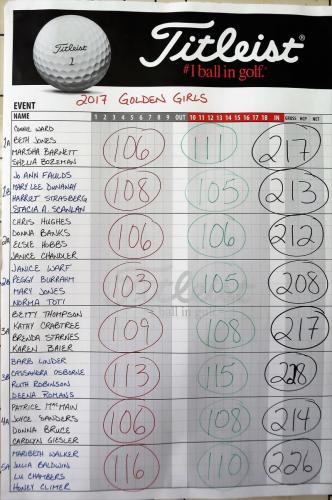 Titleist
1
Titleist®
#1 ball in golf.™
EVENT 2017 GOLDEN GIRLS
NAME 1 2 3 4 5 6 7 8 9 OUT 10 11 12 13 14 15 16 17 18 IN GROSS HCP NET
CONNIE WARD
1A BETH JONES 106 111 217
MARSHA BARNETT
SHELIA BOZEMAN
JO ANN FAULDS
1B MARY LEE DUNNANAY 108 105 213
HARRIET STRASBERG
STACIA A. SCANLAN
CHRIS HUGHES
2A DONNA BANKS 106 106 212
ELSIE HOBBS
JANICE CHANDLER
JANICE WARF
2B PEGGY BURRAHM 103 105 208
MARY JONES
NORMA TOTI
BETTY THOMPSON
3A KATHY CRABTREE 109 108 217
BRENDA STARNES
KAREN BAIER
BARB LINDER
3B CASSANDRA OSBORNE 113 115 228
RUTH ROBINSON
DEENA ROMANS
PATRICE MacMAIN
4A JOYCE SANDERS 106 108 214
DONNA BRUCE
CAROLYN GIESLER
MARIBETH WALKER
5A JULIA BALDWIN 116 110 226
LU CHAMBERS
HONEY CLIMER